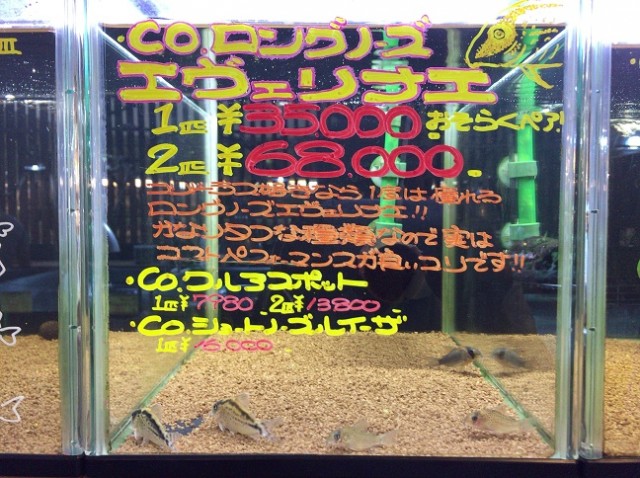 ・CO.ロングノーズ
エヴェリナエ
1匹¥35000 おそらくペア!
2匹¥68,000。
1度は憧れる
ロングノーズエヴェリナエ!!
かなりうつな種類なので実は
コストパフォーマンスが良いコリです!!
・CO.コルレアスポット
1匹¥7980 2匹¥13800
・CO.ショートノーズルイーザ
1匹¥16,000